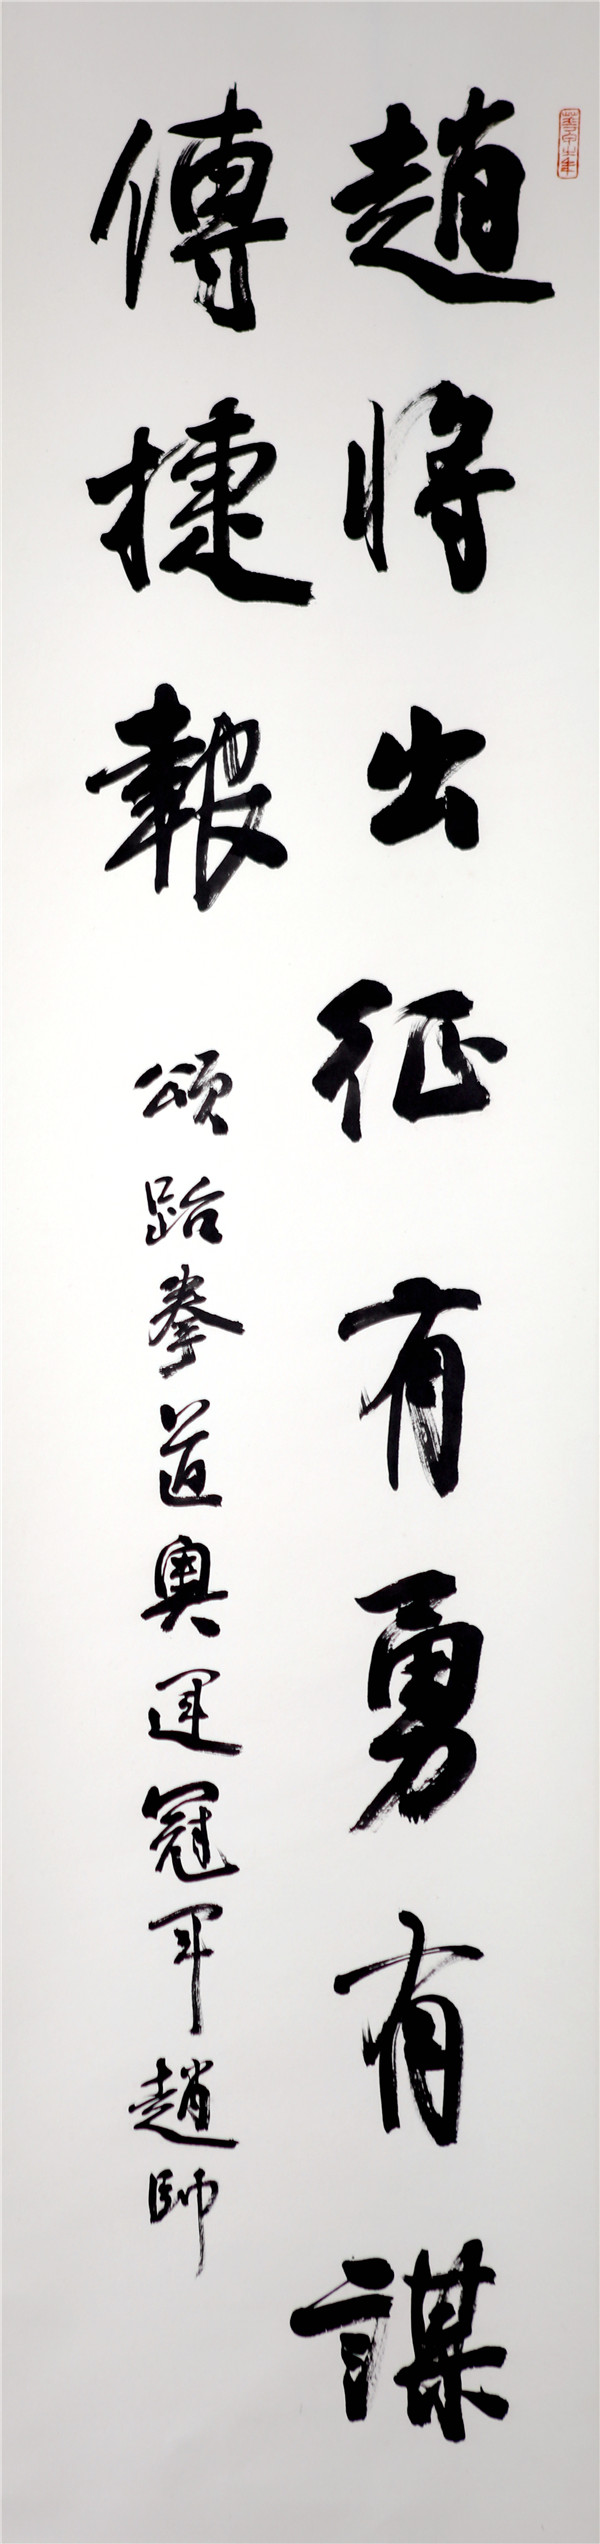 趙將出征有勇有謀
傳捷報
頌跆拳道奧運冠軍趙帥